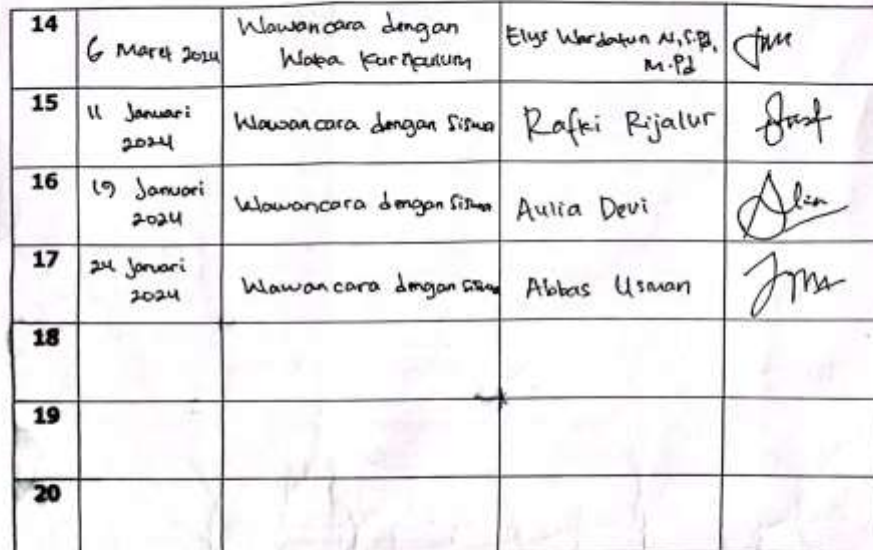 14
6 Maret 2024
Wawancara dengan
Waka Kurikulum
Elys Wardatun N, S.Pd,
M.Pd
15
11 Januari
2024
Wawancara dengan Siswa
Rafki Rijalur
16
19 Januari
2024
Wawancara dengan Siswa
Aulia Devi
17
24 Januari
2024
Wawancara dengan Siswa
Abbas Usman
18
19
20